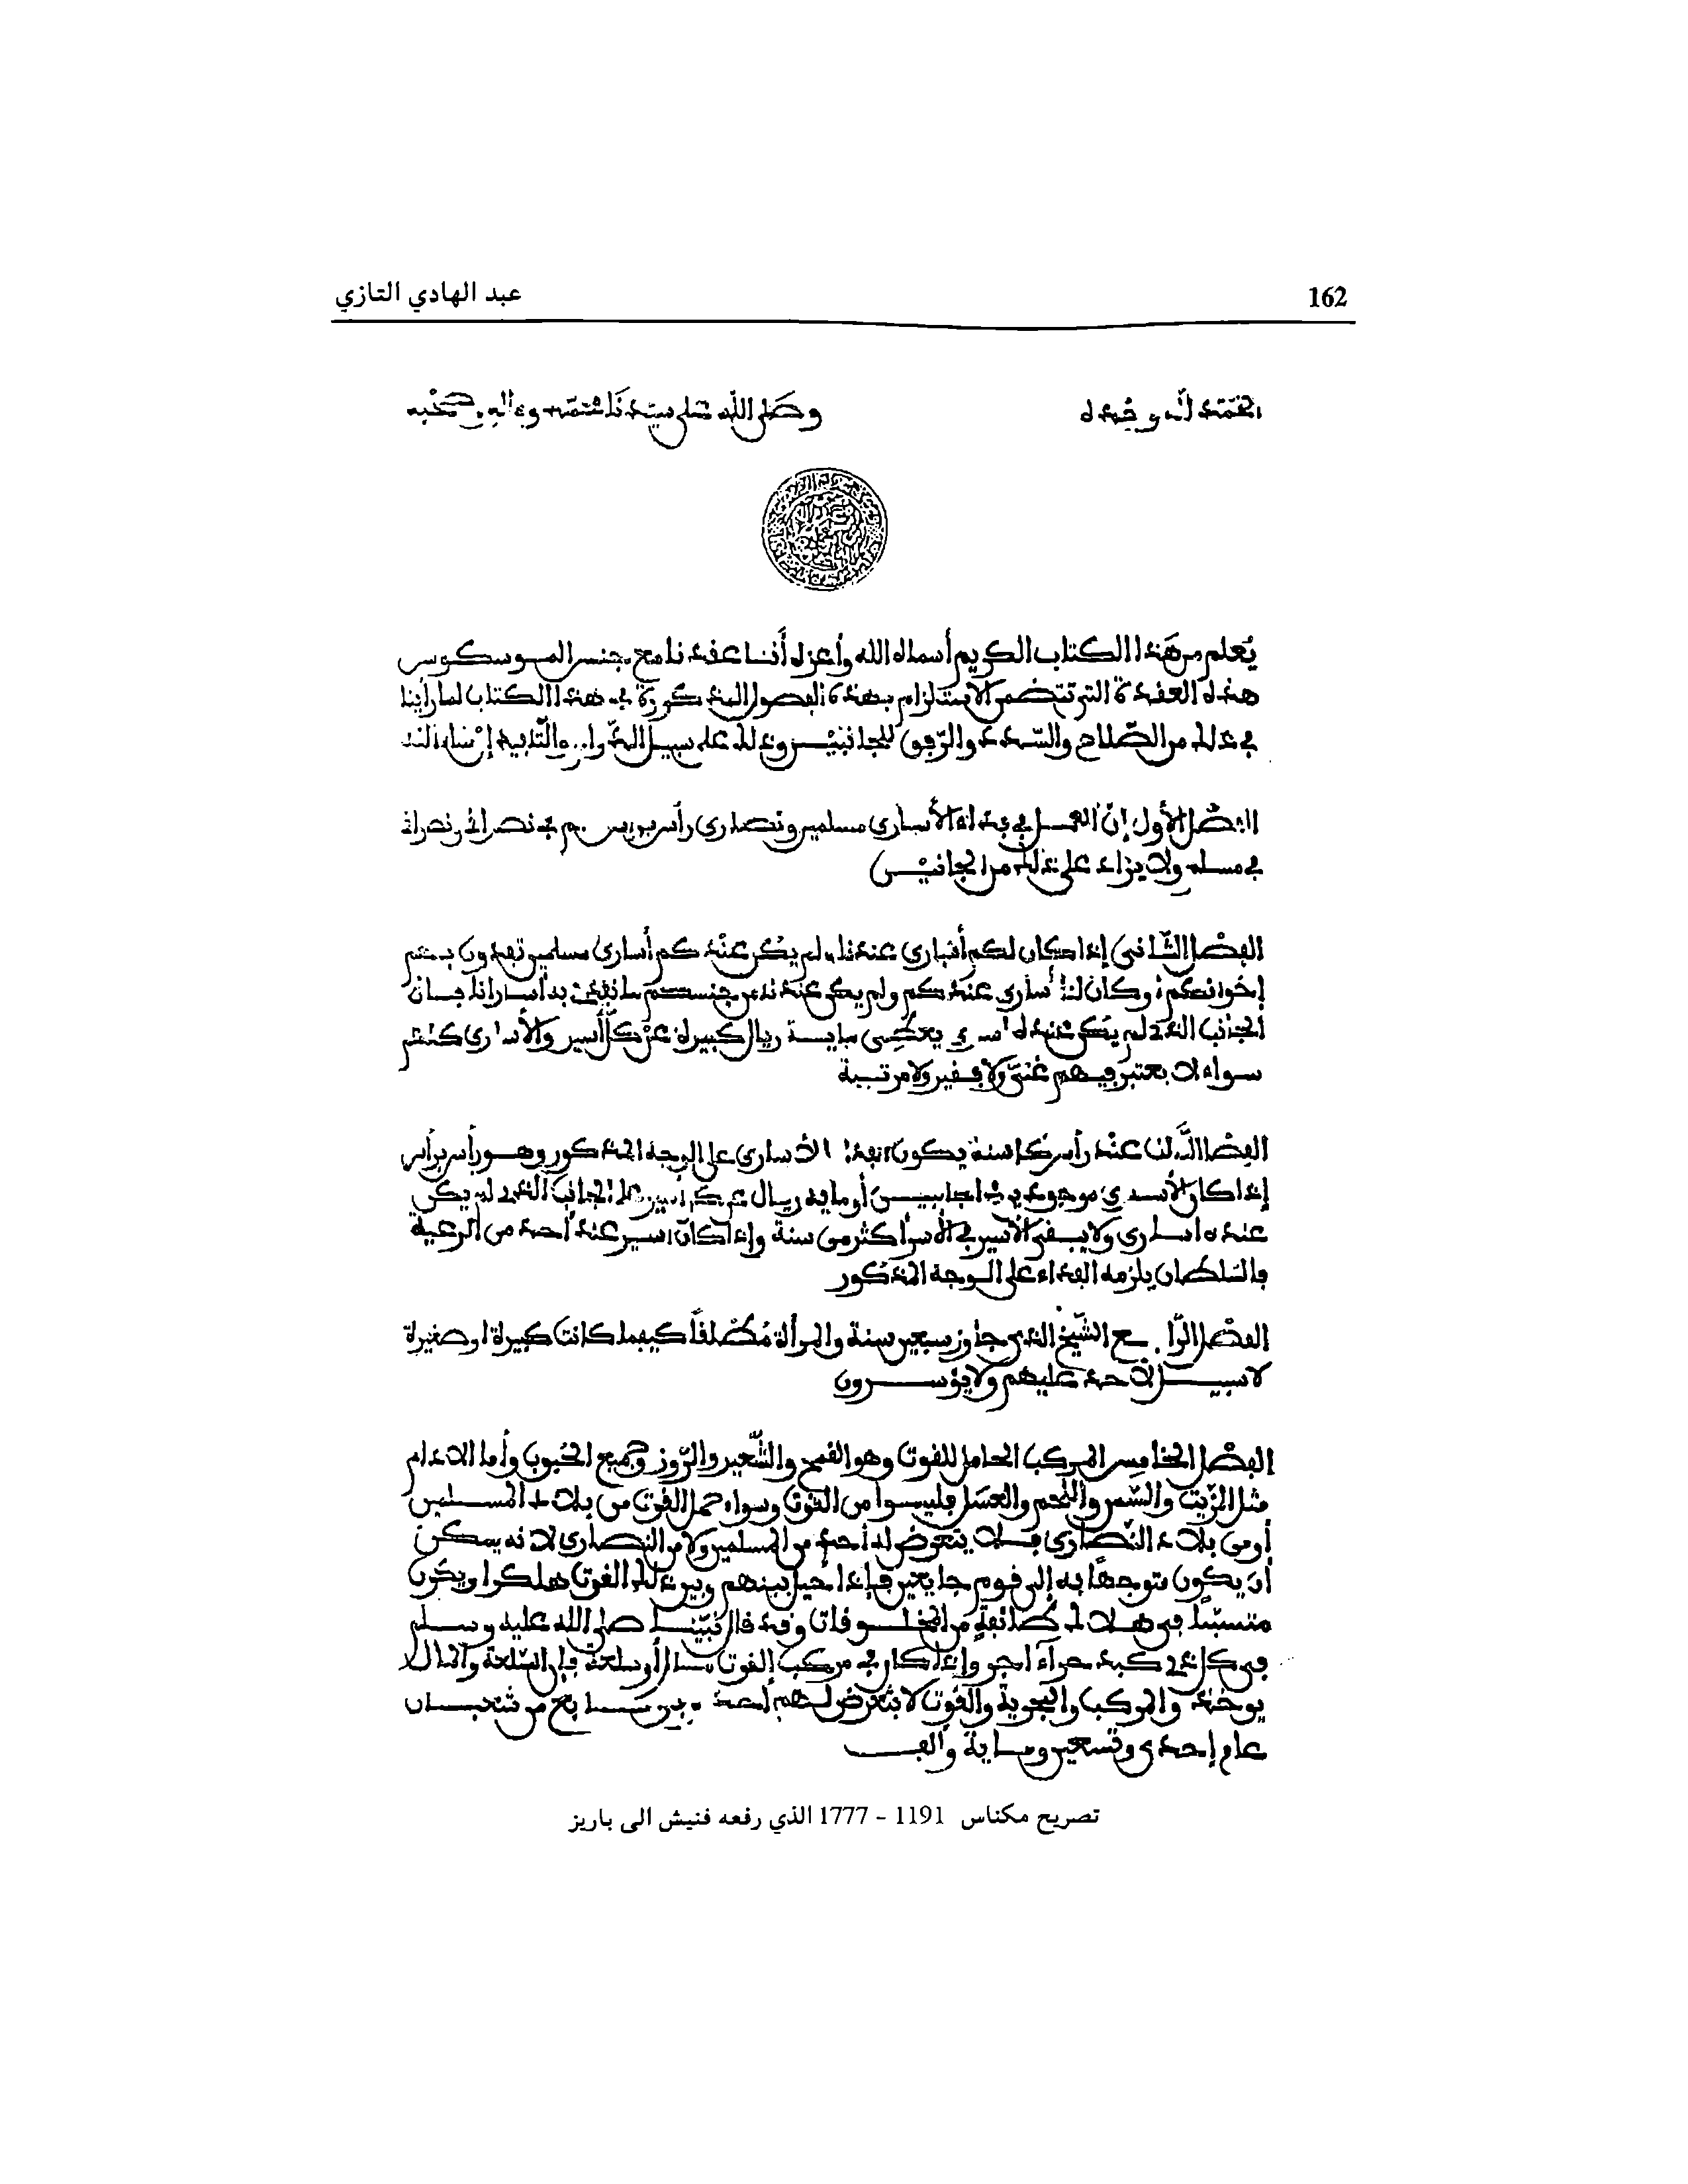 162 عبد الهادي التازي
الحمد لله وحده وصلى الله على سيدنا محمد وءاله وصحبه
يعلم من هذا الكتاب الكريم أسماه الله وأعزه أننا عقدنا مع جنس
هذه العقدة التي تتضمن الاستلزام بهذه الفصول المذكورة في هذا الكتاب لما رأينا
في ذلك من الصلاح والسداد والرفق للجانبين وذلك على سبيل الدوام والتأبيد إن شاء الله
الفصل الأول إن العمل في فداء الأسارى مسلمين ونصارى رأس برأس مسلم في نصراني ونصراني
في مسلم ولا يزاد على ذلك من الجانبين
الفصل الثاني إذا كان لكم أسارى عندنا ولم يكن عندكم أسارى مسلمين تفدون بهم
إخوانكم أو كان لنا أسارى عندكم ولم يكن عندنا من جنسكم ما نفدي به أسارانا فإن
الجانب الذي لم يكن عنده أسرى يعطي ماية ريال كبيرة عن كل أسير والأسارى كلهم
سواء لا يعتبر فيهم غني ولا فقير ولا مرتبة
الفصل الثالث عند رأس كل سنة يكون فداء الأسارى على الوجه المذكور وهو رأس برأس
إذا كان الأسرى موجودين في الجانبين أو ماية ريال عن كل أسير على الجانب الذي لم يكن
عنده اسارى ولا يبقى الأسير في الأسر أكثر من سنة وإذا كان اسير عند أحد من الرعية
فالسلطان يلزمه الفداء على الوجه المذكور
الفصل الرابع الشيخ الذي جاوز سبعين سنة والمرأة مطلقا كيفما كانت كبيرة أو صغيرة
لا سبيل لأحد عليهم ولا يؤسرون
الفصل الخامس المركب الحامل للقوت وهو القمح والشعير والروز وجميع الحبوب وأما الادام
مثل الزيت والسمن واللحم والعسل فليسوا من القوت وسواء حمل القوت من بلاد المسلمين
أو من بلاد النصارى فلا يتعرض له أحد من المسلمين ولا من النصارى لانه يمكن
أن يكون متوجها به إلى قوم جايعين فإذا حيل بينهم وبين ذلك القوت هلكوا ويكون
متسببا في هلاك طائفة من المخلوقات وقد قال نبينا صلى الله عليه وسلم
في كل ذي كبد حراء أجر وإذا كان في مركب القوت مال أو سلعة فإن السلعة والمال
يوخذ والمركب والبحرية والقوت لا يتعرض لهم أحد سابع من شعبان
عام إحدى وتسعين وماية وألف
تصريح مكناس 1191 - 1777 الذي رفعه فنيش الى باريز